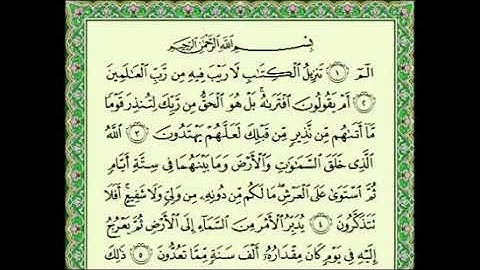 بِسْمِ ٱللَّهِ ٱلرَّحْمَٰنِ ٱلرَّحِيمِ
الٓمٓ ۝١ تَنزِيلُ ٱلْكِتَٰبِ لَا رَيْبَ فِيهِ مِن رَّبِّ ٱلْعَٰلَمِينَ
۝٢ أَمْ يَقُولُونَ ٱفْتَرَىٰهُ ۚ بَلْ هُوَ ٱلْحَقُّ مِن رَّبِّكَ لِتُنذِرَ قَوْمًا
مَّآ أَتَىٰهُم مِّن نَّذِيرٍ مِّن قَبْلِكَ لَعَلَّهُمْ يَهْتَدُونَ ۝٣ ٱللَّهُ
ٱلَّذِى خَلَقَ ٱلسَّمَٰوَٰتِ وَٱلْأَرْضَ وَمَا بَيْنَهُمَا فِى سِتَّةِ أَيَّامٍ
ثُمَّ ٱسْتَوَىٰ عَلَى ٱلْعَرْشِ ۖ مَا لَكُم مِّن دُونِهِۦ مِن وَلِىٍّ وَلَا شَفِيعٍ ۚ أَفَلَا
تَتَذَكَّرُونَ ۝٤ يُدَبِّرُ ٱلْأَمْرَ مِنَ ٱلسَّمَآءِ إِلَى ٱلْأَرْضِ ثُمَّ يَعْرُجُ
إِلَيْهِ فِى يَوْمٍ كَانَ مِقْدَارُهُۥٓ أَلْفَ سَنَةٍ مِّمَّا تَعُدُّونَ ۝٥ ذَٰلِكَ